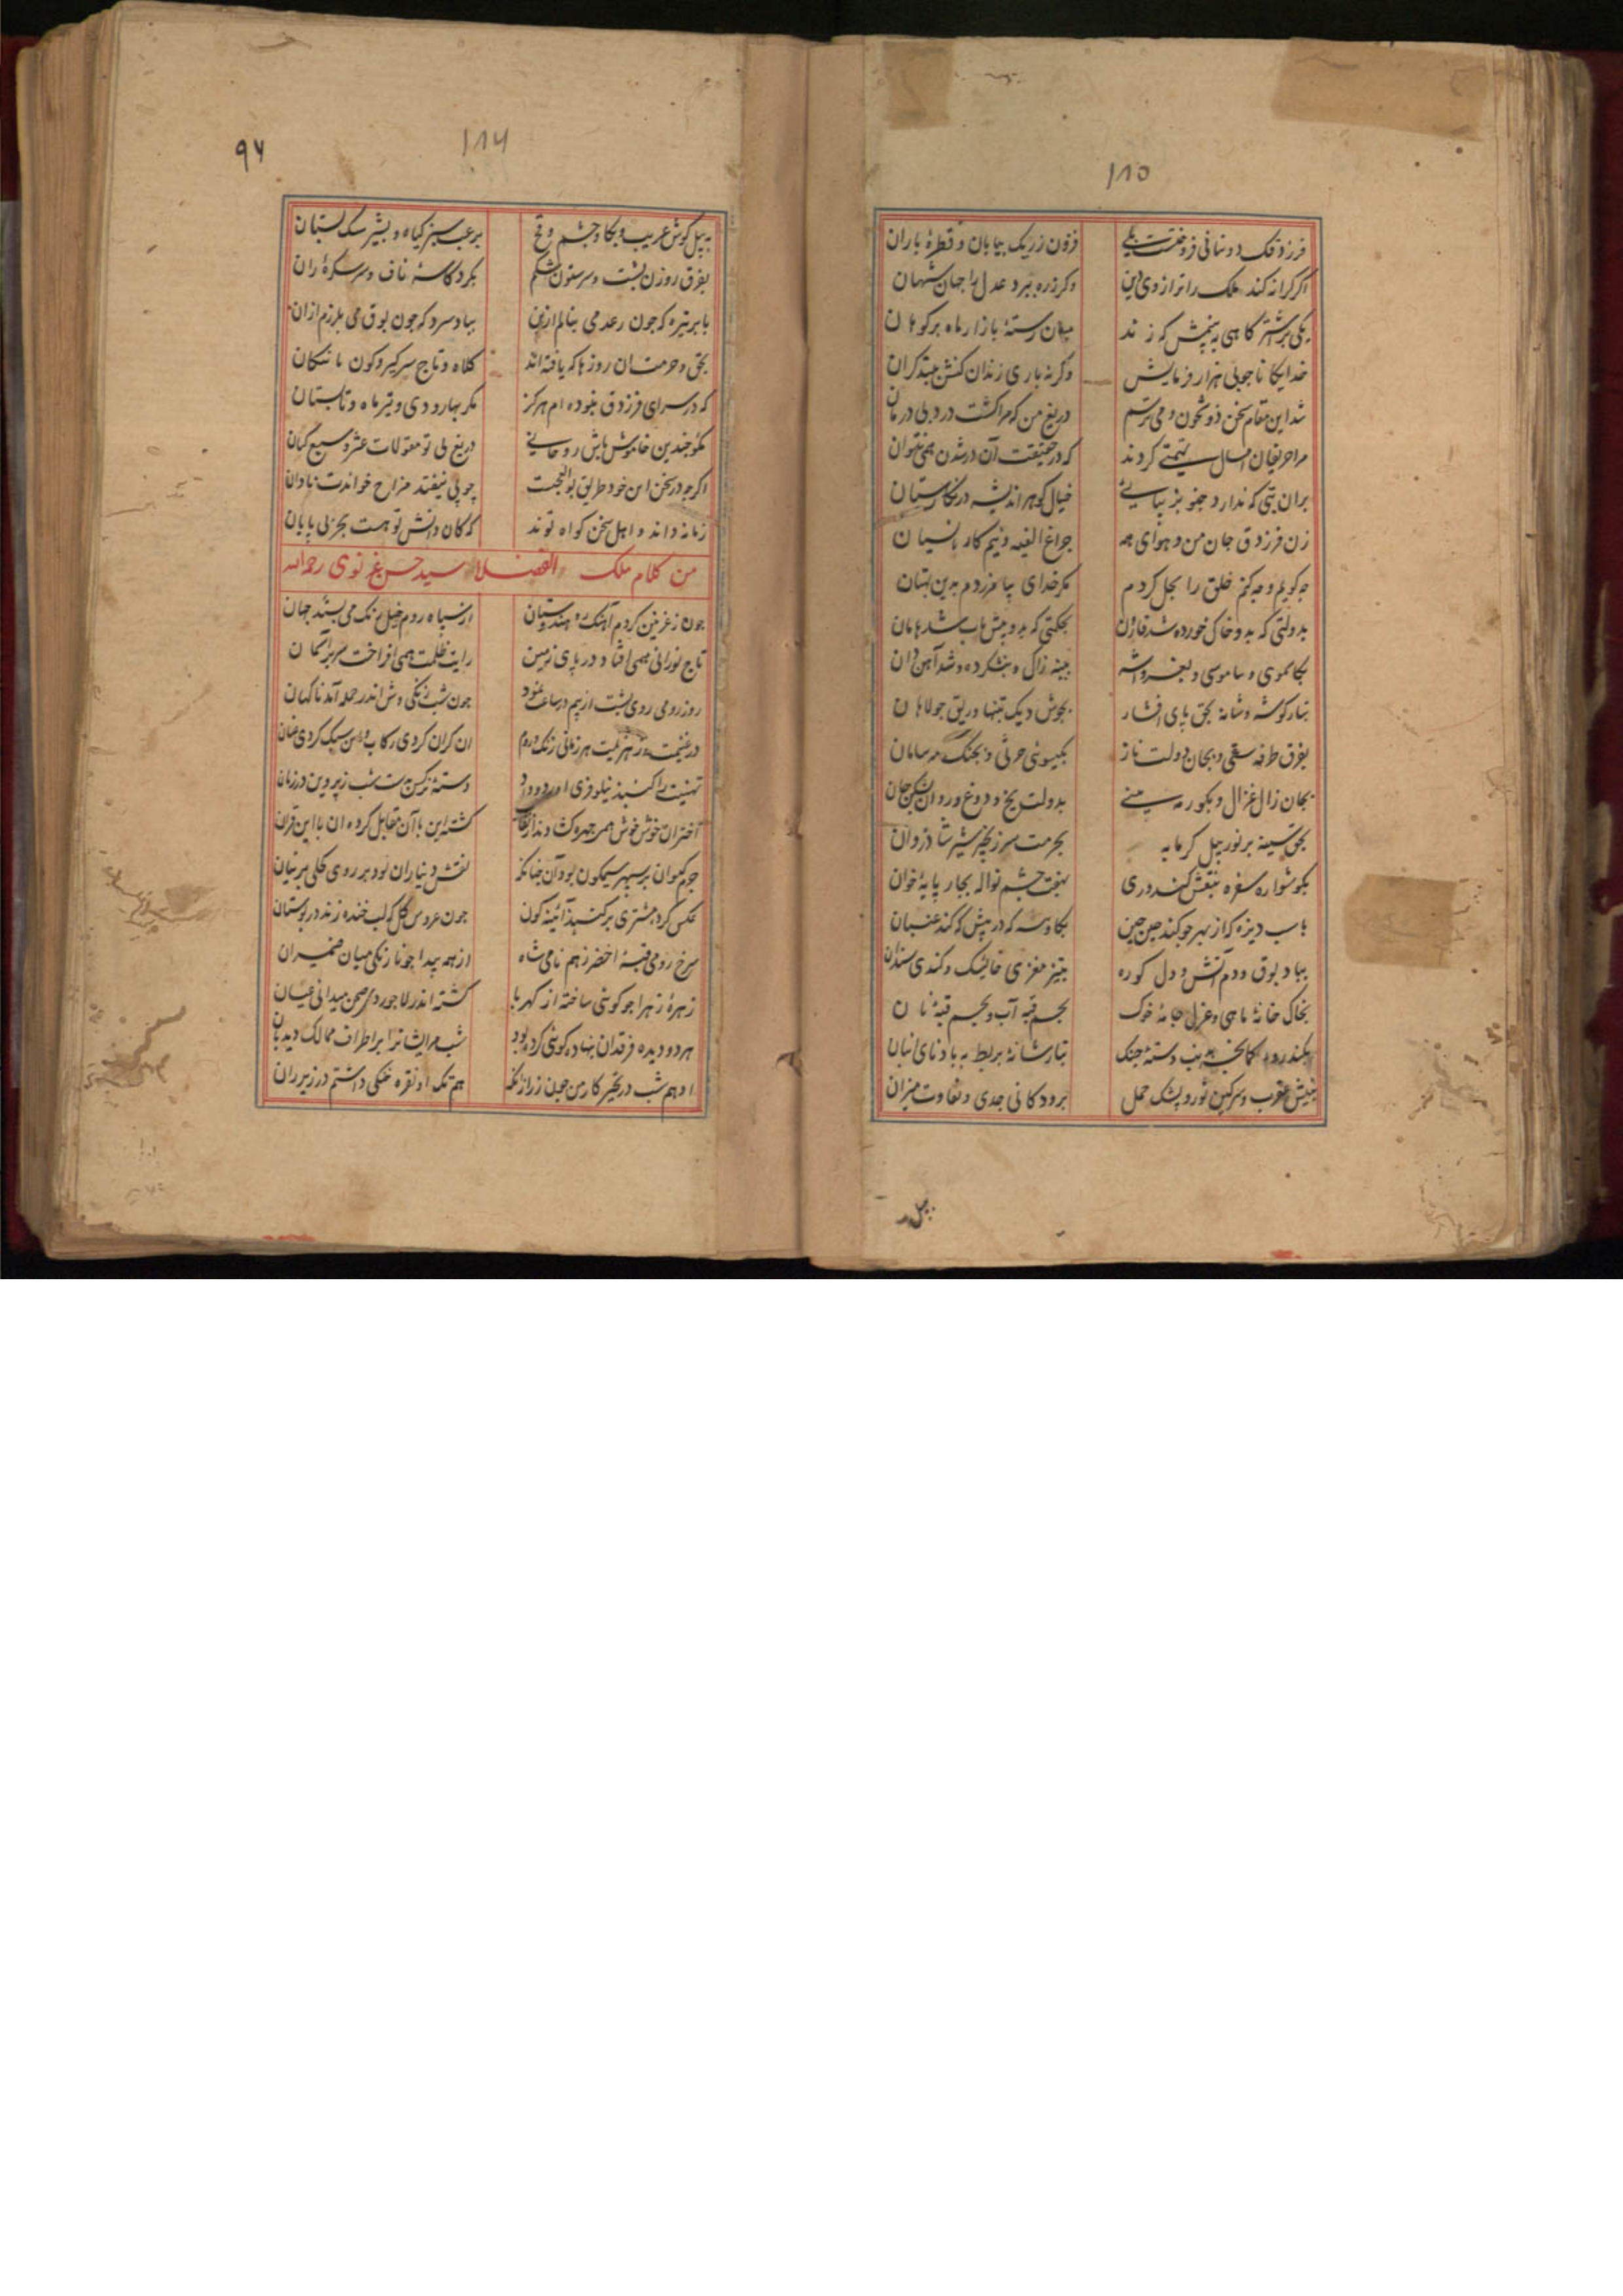 ۱۸۵
فرزدقک دوسانی فروخت یکی فزون ز ریک بیابان و قطرهٔ باران
اکر کرانه کند ملک را ترازوی دین وکر ذره ببرد عدل را جهان شهان
یکی بر اشتر کاهی به پنمش که زند میان رستهٔ بازار ماه برکوهان
خدایکانا جوبی هزار فرمایش وکرنه باری زندان کنش
شد این مقام سخن ذو شجون و می ترسم دریغ من که مرا کشت درد بی درمان
مرا حریفان امسال تهمتی کردند که در حقیقت آن در شدن همی نتوان
بران بتی که ندارد جنو بزیبایی خیال کوهر اندیشه در نکارستان
زن فرزدق جان من و هوای همه جراغ
جه کویم و جه کنم خلق را بحل کردم مکر خدای بیامرزدم بدین بهتان
بدولتی که بدو خاک خورده شد قارون بحکمتی که بدو پیش هامان
بکاموی و ساموسی و
بتار کوشه و شانه بحق پای افشار بجوش دیک تنها و ریق جولاهان
بفرق طرفه سقی و بجان دولت ناز بکیسوی حربی و بجنک سر سامان
بجان زال غزال و بکور مه سینی بدولت یخ و دوغ و روان
بحق سینه پر نور چپل کرمابه بحرمت سر زنجیر شیر شادروان
بکوشواره سفره بنقش کندوری بهفت چشم نواله بچار پایهٔ خوان
باسب دیزه که از بهر جو کند چین چین بکاوسه که در پیش کوکند عنبان
بباد بوق و دم آتش و دل کوره بتیز مغزی خایسک و کندی سندان
بخاک خانهٔ ماهی و عزل جامهٔ خوک بجسم قبه آب و بجسم قبهٔ نان
بکندروه کمانچه به بند دستهٔ جنک بتار شانهٔ بربط به باد نای انبان
بنیش عقرب و سرکین ثور و پشک حمل برودکانی جدی و تفاوت میزان
بپیل
۹۶
۱۸۶
به پیل کوش غریب و بکاو چشم و قح بر عنب سبز کیاه و بشیر سک پستان
بفرق روزن پشت و سر ستون شکم بکرد کاسهٔ ناف و سر سکرهٔ ران
بابر تیره که چون رعد می بنالم ازین بباد سرد که چون بوق می بلرزم ازان
بحق و حرمت آن روزها که یافته اند کلاه و تاج سر کیر و کون
که در سرای فرزدق نبوده ام هرکز مکر بهار و دی و تیر ماه و تابستان
مکو چندین خاموش باش روحانی دریغ بی تو مقولات عشر و سبع کیان
اکرچه در سخن این خود طریق بوالعجبیست چو پی نیفتد مزاح خواندت نادان
زمانه داند و اهل سخن کواه توند که کان دانش تو هست بحر بی پایان
من کلام ملک الفضلا سید حسن غزنوی رحمه الله
چون ز غزنین کردم آهنک ره هندوستان از سپاه روم خیل زنک می بستد جهان
تاج نورانی همی افتاد در پای زمین رایت ظلمت همی افراخت سر بر آسمان
روز رومی روی پشت از بیم در ساعت نمود چون شب زنکی وش اندر حمله آمد ناکهان
در غنیمت در هزیمت هر زمانی زنک و روم آن کران کردی رکاب و این سبک کردی عنان
تهنیت را کنبذ نیلوفری آورد و داد دستهٔ نرکس بدست شب ز پروین در زمان
اختران خوش خوش همی چهره کشادند از نقاب کشته این با آن مقابل کرده آن با این قران
جرم کیوان بر سپهر سیمکون بود آن چنانکه نقش دیناران بود بر روی کحلی پرنیان
عکس کرد مشتری بر کنبذ آئینه کون چون عروس کل که لب خنده زند در بوستان
سرخ رومی قبهٔ اخضر ز هم نامی شاه از همه پیدا چو نارنکی میان ضیمران
زهرهٔ زهرا چو کویی ساخته از کهربا کشته اندر لاجوردی صحن میدانی عیان
هر دو دیده فرقدان بنهاده کویی کرده بود شب مرایشان را بر اطراف ممالک دیدبان
ادهم شب در تحیر کار من چون زر ازانکه هم تک او نقره خنکی داشتم در زیر ران